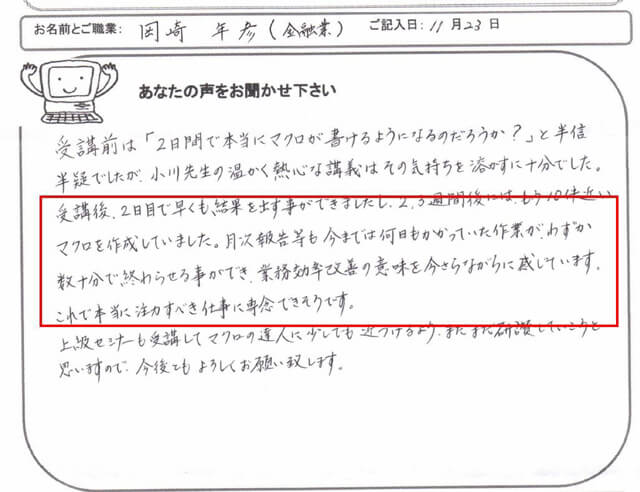 お名前とご職業: 岡崎 年彦(金融業) ご記入日: 11月23日
あなたの声をお聞かせ下さい
受講前は「2日間で本当にマクロが書けるようになるのだろうか?」と半信
半疑でしたが、小川先生の温かく熱心な講義はその気持ちを溶かすに十分でした。
受講後、2日目で早くも結果を出す事ができましたし、2,3週間後には、もう10件近い
マクロを作成していました。月次報告等も今までは何日もかかっていた作業が、わずか
数十分で終わらせる事ができ、業務効率改善の意味を今さらながらに感じています。
これで本当に注力すべき仕事に専念できそうです。
上級セミナーも受講してマクロの達人に少しでも近づけるよう、まだまだ研讃していこうと
思いますので、今後ともよろしくお願い致します。